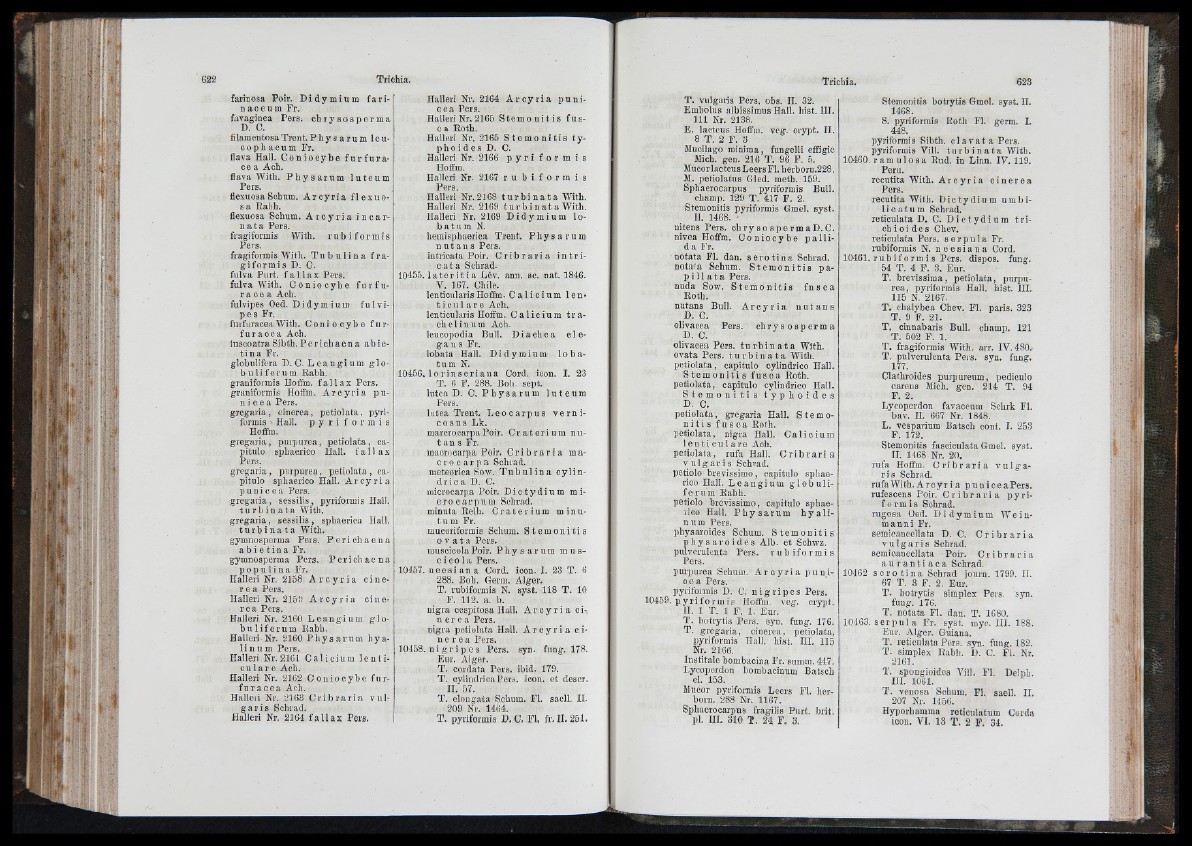 622 Trichia.
farinosa Poir. Didymium fari-
naceum Fr.
favaginea Pers. chrysosperma
D. C.
filamentosa Trent. Physarum leu-
cophaeum Fr.
flava Hall. Coniocybe furfura-
cea Ach.
flava With. Physarum luteum
Pers.
flexuosa Schum. Arcyria flexuo-
sa Rabh.
flexuosa Schum. Arcyria incar-
nata Pers.
fragiformis With. rubiformis
Pers.
fragiformis With. Tubulina fra-
giformis D. C.
fulva Purt. fallax Pers.
fulva With. Coniocybe furfu-
racea Ach.
fulvipes Oed. Didymium fulvi-
pes Fr.
furfuracea With. Coniocybe fur-
furacea Ach.
fuscoatra Sibth. Perichaena abie-
tina Fr.
globulifera D. C. Leangium glo-
buliferum Rabh.
graniformis Hoffm. fallax Pers.
graniformis Hoffm. Arcyria pu-
nicea Pers.
gregaria, cinerea, petiolata, pyri-
formis Hall. pyriformis
Hoffm.
gregaria, purpurea, petiolata, ca-
pitulo sphaerico Hall. fallax
Pers.
gregaria, purpurea, petiolata, ca-
pitulo sphaerico Hall. Arcyria
punicea Pers.
gregaria, sessilis, pyriformis Hall.
turbinata With.
gregaria, sessilis, sphaerica Hall.
turbinata With.
gymnosperma Pers. Perichaena
abietina Fr.
gymnosperma Pers. Perichaena
populina Fr.
Halleri Nr. 2158 Arcyria cine-
rea Pers.
Halleri Nr. 2159 Arcyria cine-
rea Pers.
Halleri Nr. 2160 Leangium glo-
buliferum Rabh.
Halleri Nr. 2160 Physarum hya-
linum Pers.
Halleri Nr. 2161 Calicium lenti-
culare Ach.
Halleri Nr. 2162 Coniocybe fur-
furacea Ach.
Halleri Nr. 2163 Cribraria vul-
garis Schrad.
Halleri Nr. 2164 fallax Pers.
Halleri Nr. 2164 Arcyria puni-
cea Pers.
Halleri Nr. 2165 Stemonitis fus-
ca Roth.
Halleri Nr. 2165 Stemonitis ty-
phoides D. C.
Halleri Nr. 2166 pyriformis
Hoffm.
Halleri Nr. 2167 rubiformis
Pers.
Halleri Nr. 2168 turbinata With.
Halleri Nr. 2169 turbinata With.
Halleri Nr. 2169 Didymium lo-
batum N.
hemisphaerica Trent. Physarum
nutans Pers.
intricata Poir. Cribraria intri-
cata Schrad.
10455. lateritia Lév. ann. sc. nat. 1846.
V. 167. Chile.
lenticularis Hoffm. Calicium len-
ticulare Ach.
lenticularis Hoffm. Calicium tra-
chelinum Ach.
leucopodia Bull. Diachea ele-
gans Fr.
lobata Hall. Didymium loba-
tum N.
10456. lorinseriana Cord. icon. I. 23
T. 6 F. 288. Boh. sept.
lutea D. C. Physarum luteum
Pers.
lutea Trent. Leocarpus verni-
cosus Lk.
marcrocarpa Poir. Craterium nu-
tans Fr.
macrocarpa Poir. Cribraria ma-
crocarpa Schrad.
meteorica Sow. Tubulina cylin-
drica D. C.
microcarpa Poir. Dictydium mi-
crocarpum Schrad.
minuta Relh. Craterium minu-
tum Fr.
mucoriformis Schum. Stemonitis
ovata Pers.
muscicola Poir. Physarum mus-
cicola Pers.
10457. neesiana Cord. icon. I. 23 T. 6
288. Boh. Germ. Alger.
T. rubiformis N. syst. 118 T. 10
F. 112. a. b.
nigra cespitosa Hall. Arcyria ci-
nerea Pers.
nigra petiolata Hall. Arcyria ci-
nerea Pers.
10458. nigripes Pers. syn. fung. 178.
Eur. Alger.
T. cordata Pers. ibid. 179.
T. cylindrica Pers. icon. et descr.
II. 57.
T. elongata Schum. Fl. saell. II.
209 Nr. 1464.
T. pyriformis D. C. Fl. fr. II. 251.
Trichia. 623
T. vulgaris Pers. obs. II. 32.
Embolus albissimus Hall. hist. III.
111 Nr. 2138.
E. lacteus Hoffm. veg. crypt. II.
8 T. 2 F. 3
Mucilago minima, fungelli effigie
Mich. gen. 216 T. 96 F. 5.
Mucor lacteus Leers Fl. herborn. 228.
M. petiolatus Gled. meth. 159.
Sphaerocarpus pyriformis Bull.
champ. 129 T. 417 F. 2.
Stemonitis pyriformis Gmel. syst.
II. 1468.
nitens Pers. chrysosperma D. C.
nivea Hoffm. Coniocybe palli-
da Fr.
notata Fl. dan. serotina Schrad.
notata Schum. Stemonitis pa-
pillata Pers.
nuda Sow. Stemonitis fusca
Roth.
nutans Bull. Arcyria nutans
D. C.
olivacea Pers. chrysosperma
D. C.
olivacea Pers. turbinata With.
ovata Pers. turbinata With.
petiolata, capitulo cylindrico Hall.
Stemonitis fusca Roth.
petiolata, capitulo cylindrico Hall.
Stemonitis typhoides
D. C.
petiolata, gregaria Hall. Stemo-
nitis fusca Roth.
petiolata, nigra Hall. Calicium
lenticulare Ach.
petiolata, rufa Hall. Cribraria
vulgaris Schrad.
petiolo brevissimo, capitulo sphae-
rico Hall. Leangium globuli-
ferum Rabh.
petiolo brevissimo, capitulo sphae-
rico Hall. Physarum hyali-
num Pers.
physaroides Schum. Stemonitis
physaroides Alb. et Schwz.
pulverulenta Pers. rubiformis
Pers.
purpurea Schum. Arcyria puni-
cea Pers.
pyriformis D. C. nigripes Pers.
10459. pyriformis Hoffm. veg. crypt.
II. 1 T. 1 F. 1. Eur.
T. botrytis Pers. syn. fung. 176.
T. gregaria, cinerea, petiolata,
pyriformis Hall. hist. III. 115
Nr. 2166.
Institale bombacina Fr. summ. 447.
Lycoperdon bombacinum Batsch
el. 153.
Mucor pyriformis Leers Fl. her-
born. 288 Nr. 1167.
Sphaerocarpus fragilis Purt. brit.
pl. III. 310 T. 24 F. 3.
Stemonitis botrytis Gmel. syst. II.
1468.
S. pyriformis Roth Fl. germ. I.
448.
pyriformis Sibth. clavata Pers.
pyriformis Vill. turbinata With.
10460. ramulosa Rud. in Linn. IV. 119.
Peru.
recutita With. Arcyria cinerea
Pers.
recutita With. Dictydium umbi-
licatum Schrad.
reticulata D. C. Dictydium tri-
chioides Chev.
reticulata Pers. serpula Fr.
rubiformis N. neesiana Cord.
10461. rubiformis Pers. dispos. fung.
54 T. 4 F. 3. Eur.
T. brevissima, petiolata, purpu-
rea, pyriformis Hall. hist. III.
115 N. 2167.
T. chalybea Chev. Fl. paris. 323
T. 9 F. 21.
T. cinnabaris Bull. champ. 121
T. 502 F. 1.
T. fragiformis With. arr. IV. 480.
T. pulverulenta Pers. syn. fung.
177.
Clathroides purpureum, pediculo
carens Mich. gen. 214 T. 94
F. 2.
Lycoperdon favaceum Schrk Fl.
bav. II. 667 Nr. 1848.
L. vesparium Batsch cont. I. 253
F. 172.
Stemonitis fasciculata Gmel. syst.
II. 1468 Nr. 20.
rufa Hoffm. Cribraria vulga-
ris Schrad.
rufa With. Arcyria punicea Pers.
rufescens Poir. Cribraria pyri-
formis Schrad.
rugosa Oed. Didymium Wein-
manni Fr.
semicancellata D. C. Cribraria
vulgaris Schrad.
semicancellata Poir. Cribraria
aurantiaca Schrad.
10462 serotina Schrad journ. 1799. II.
67 T. 3 F. 2. Eur.
T. botrytis simplex Pers. syn.
fung. 176.
T. notata Fl. dan. T. 1680.
10463. serpula Fr. syst. myc. III. 188.
Eur. Alger. Guiana.
T. reticulata Pers. syn. fung. 182.
T. simplex Rabh. D. C. Fl. Nr.
2161.
T. spongioides Vill. Fl. Delph.
III. 1061.
T. venosa Schum. Fl. saell. II.
207 Nr. 1456.
Hyporhamma reticulatum Corda
icon. VI. 13 T. 2 F. 34.